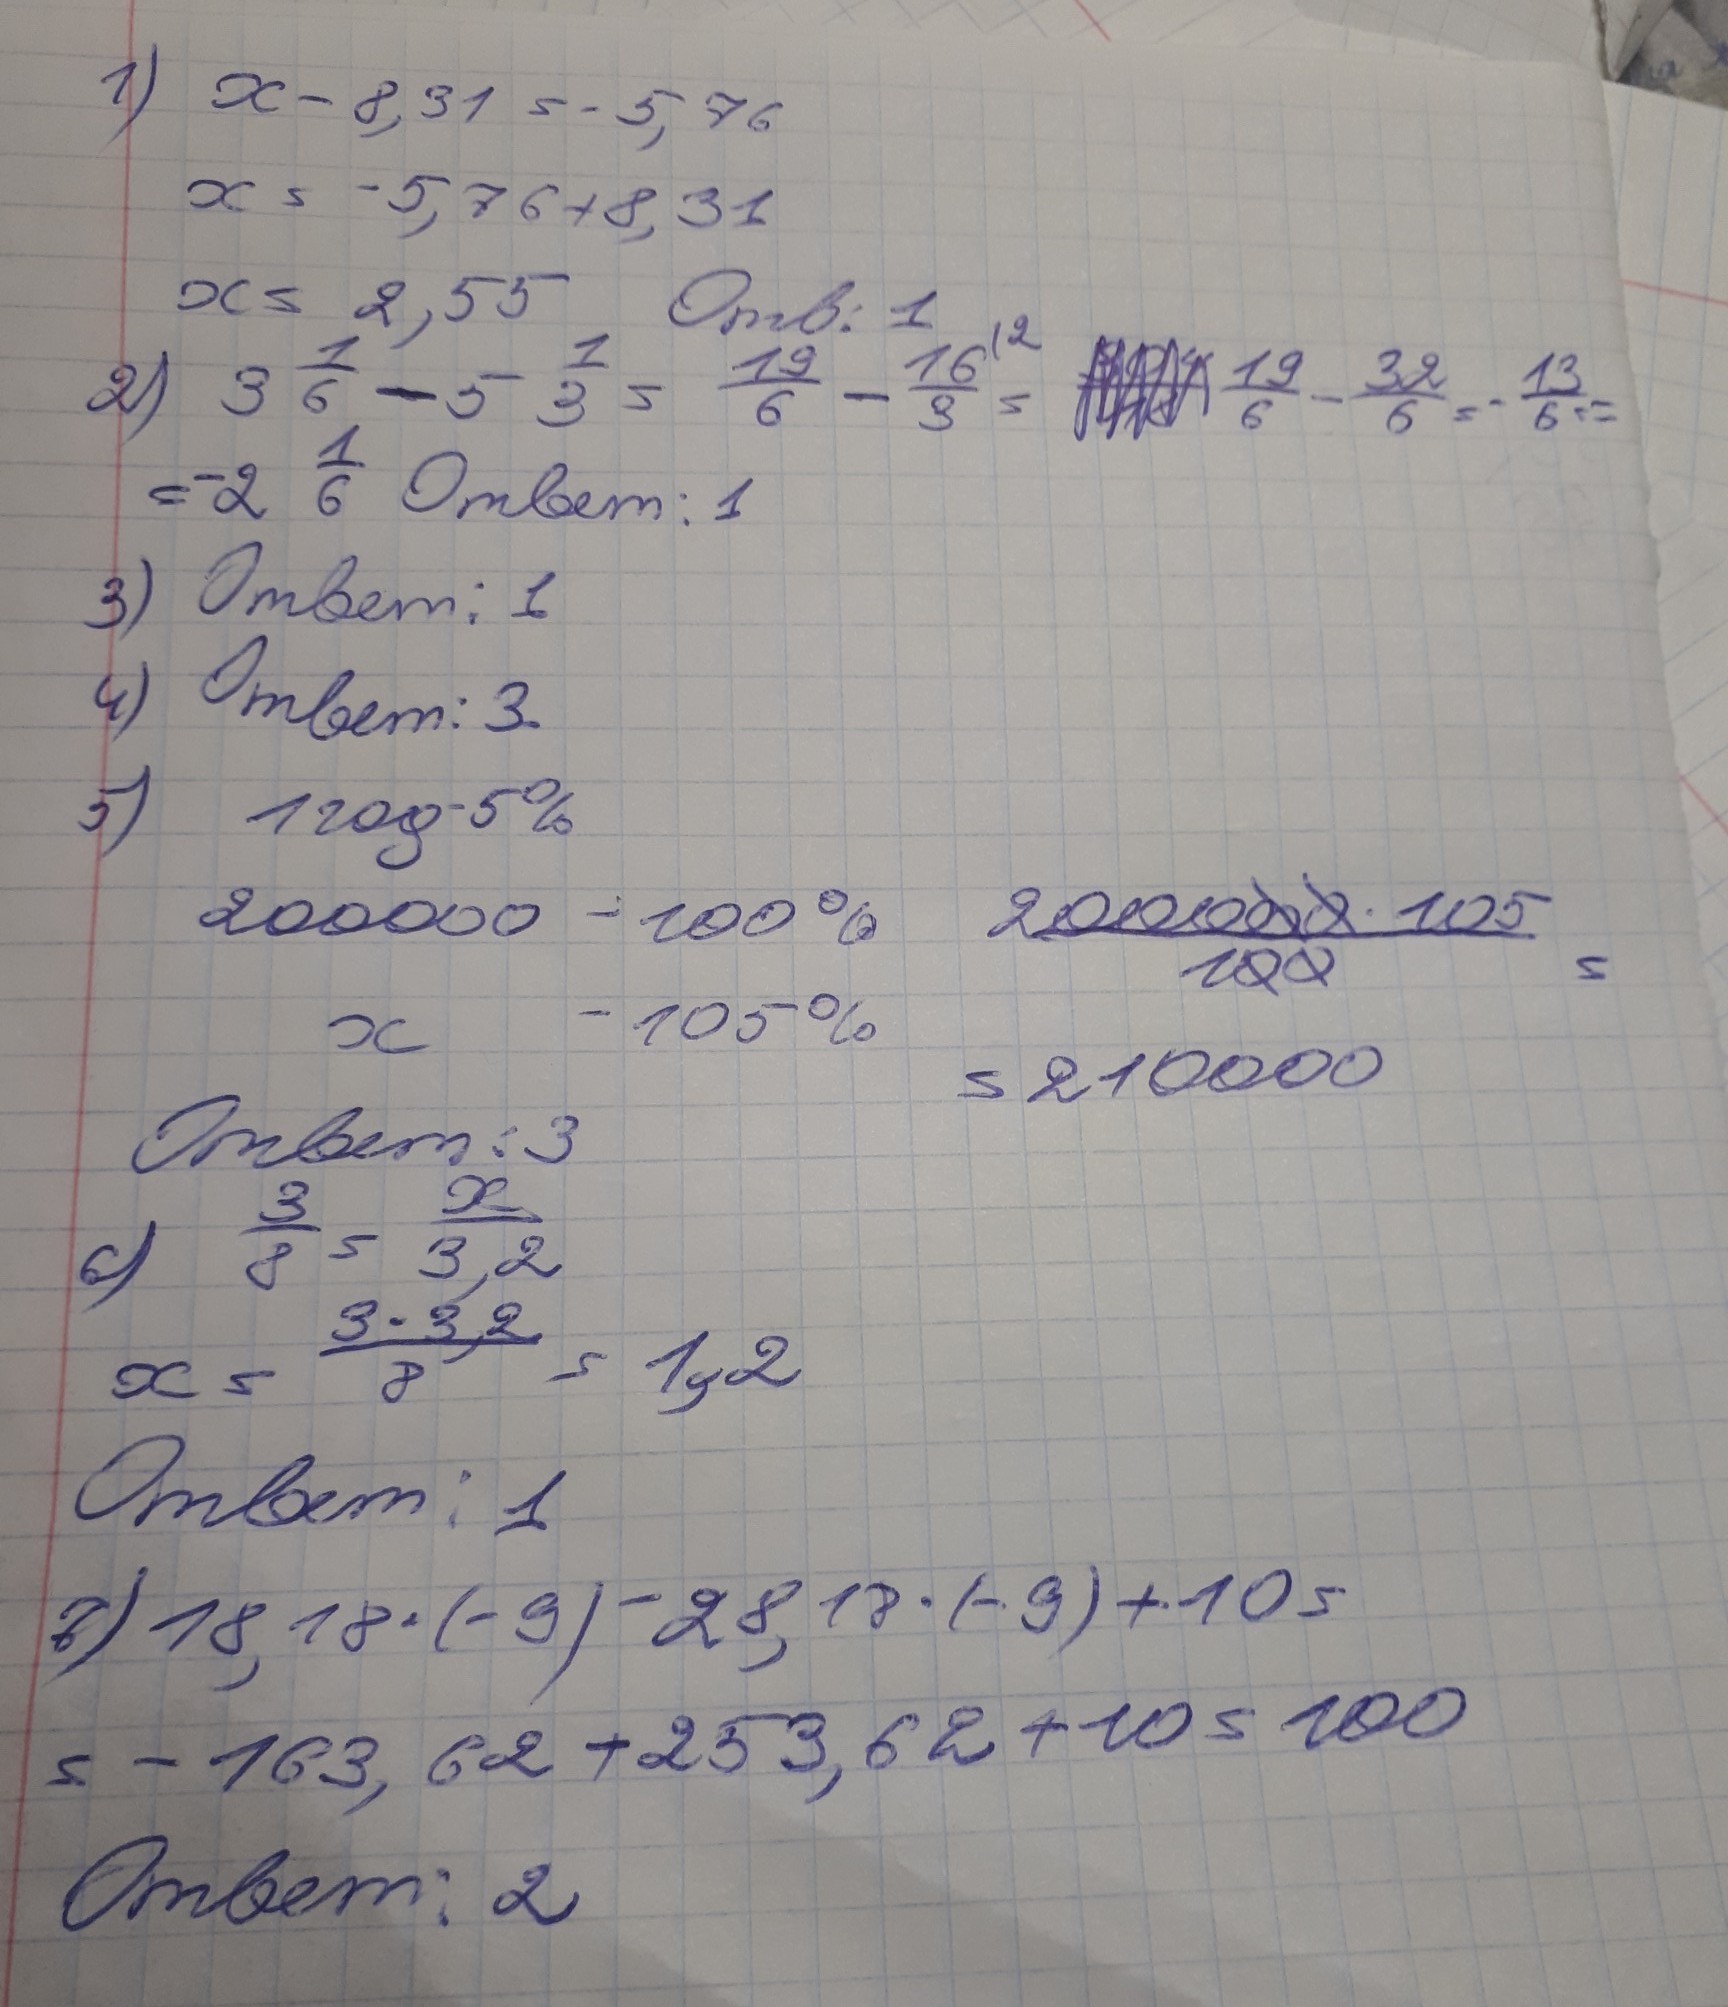 1) x - 8,31 = -5,76
x = -5,76 + 8,31
x = 2,55 Отв: 1
2) 3 1/6 - 5 1/3 = 19/6 - 16/3 (2 = 19/6 - 32/6 = - 13/6 =
= -2 1/6 Ответ: 1
3) Ответ: 1
4) Ответ: 3
5) 1 год - 5%
200000 - 100% 200000 · 105 / 100 =
x - 105%
= 210000
Ответ: 3
6) 3/8 = x/3,2
x = 3 · 3,2 / 8 = 1,2
Ответ: 1
7) 18,18 · (-9) - 28,18 · (-9) + 10 =
= -163,62 + 253,62 + 10 = 100
Ответ: 2